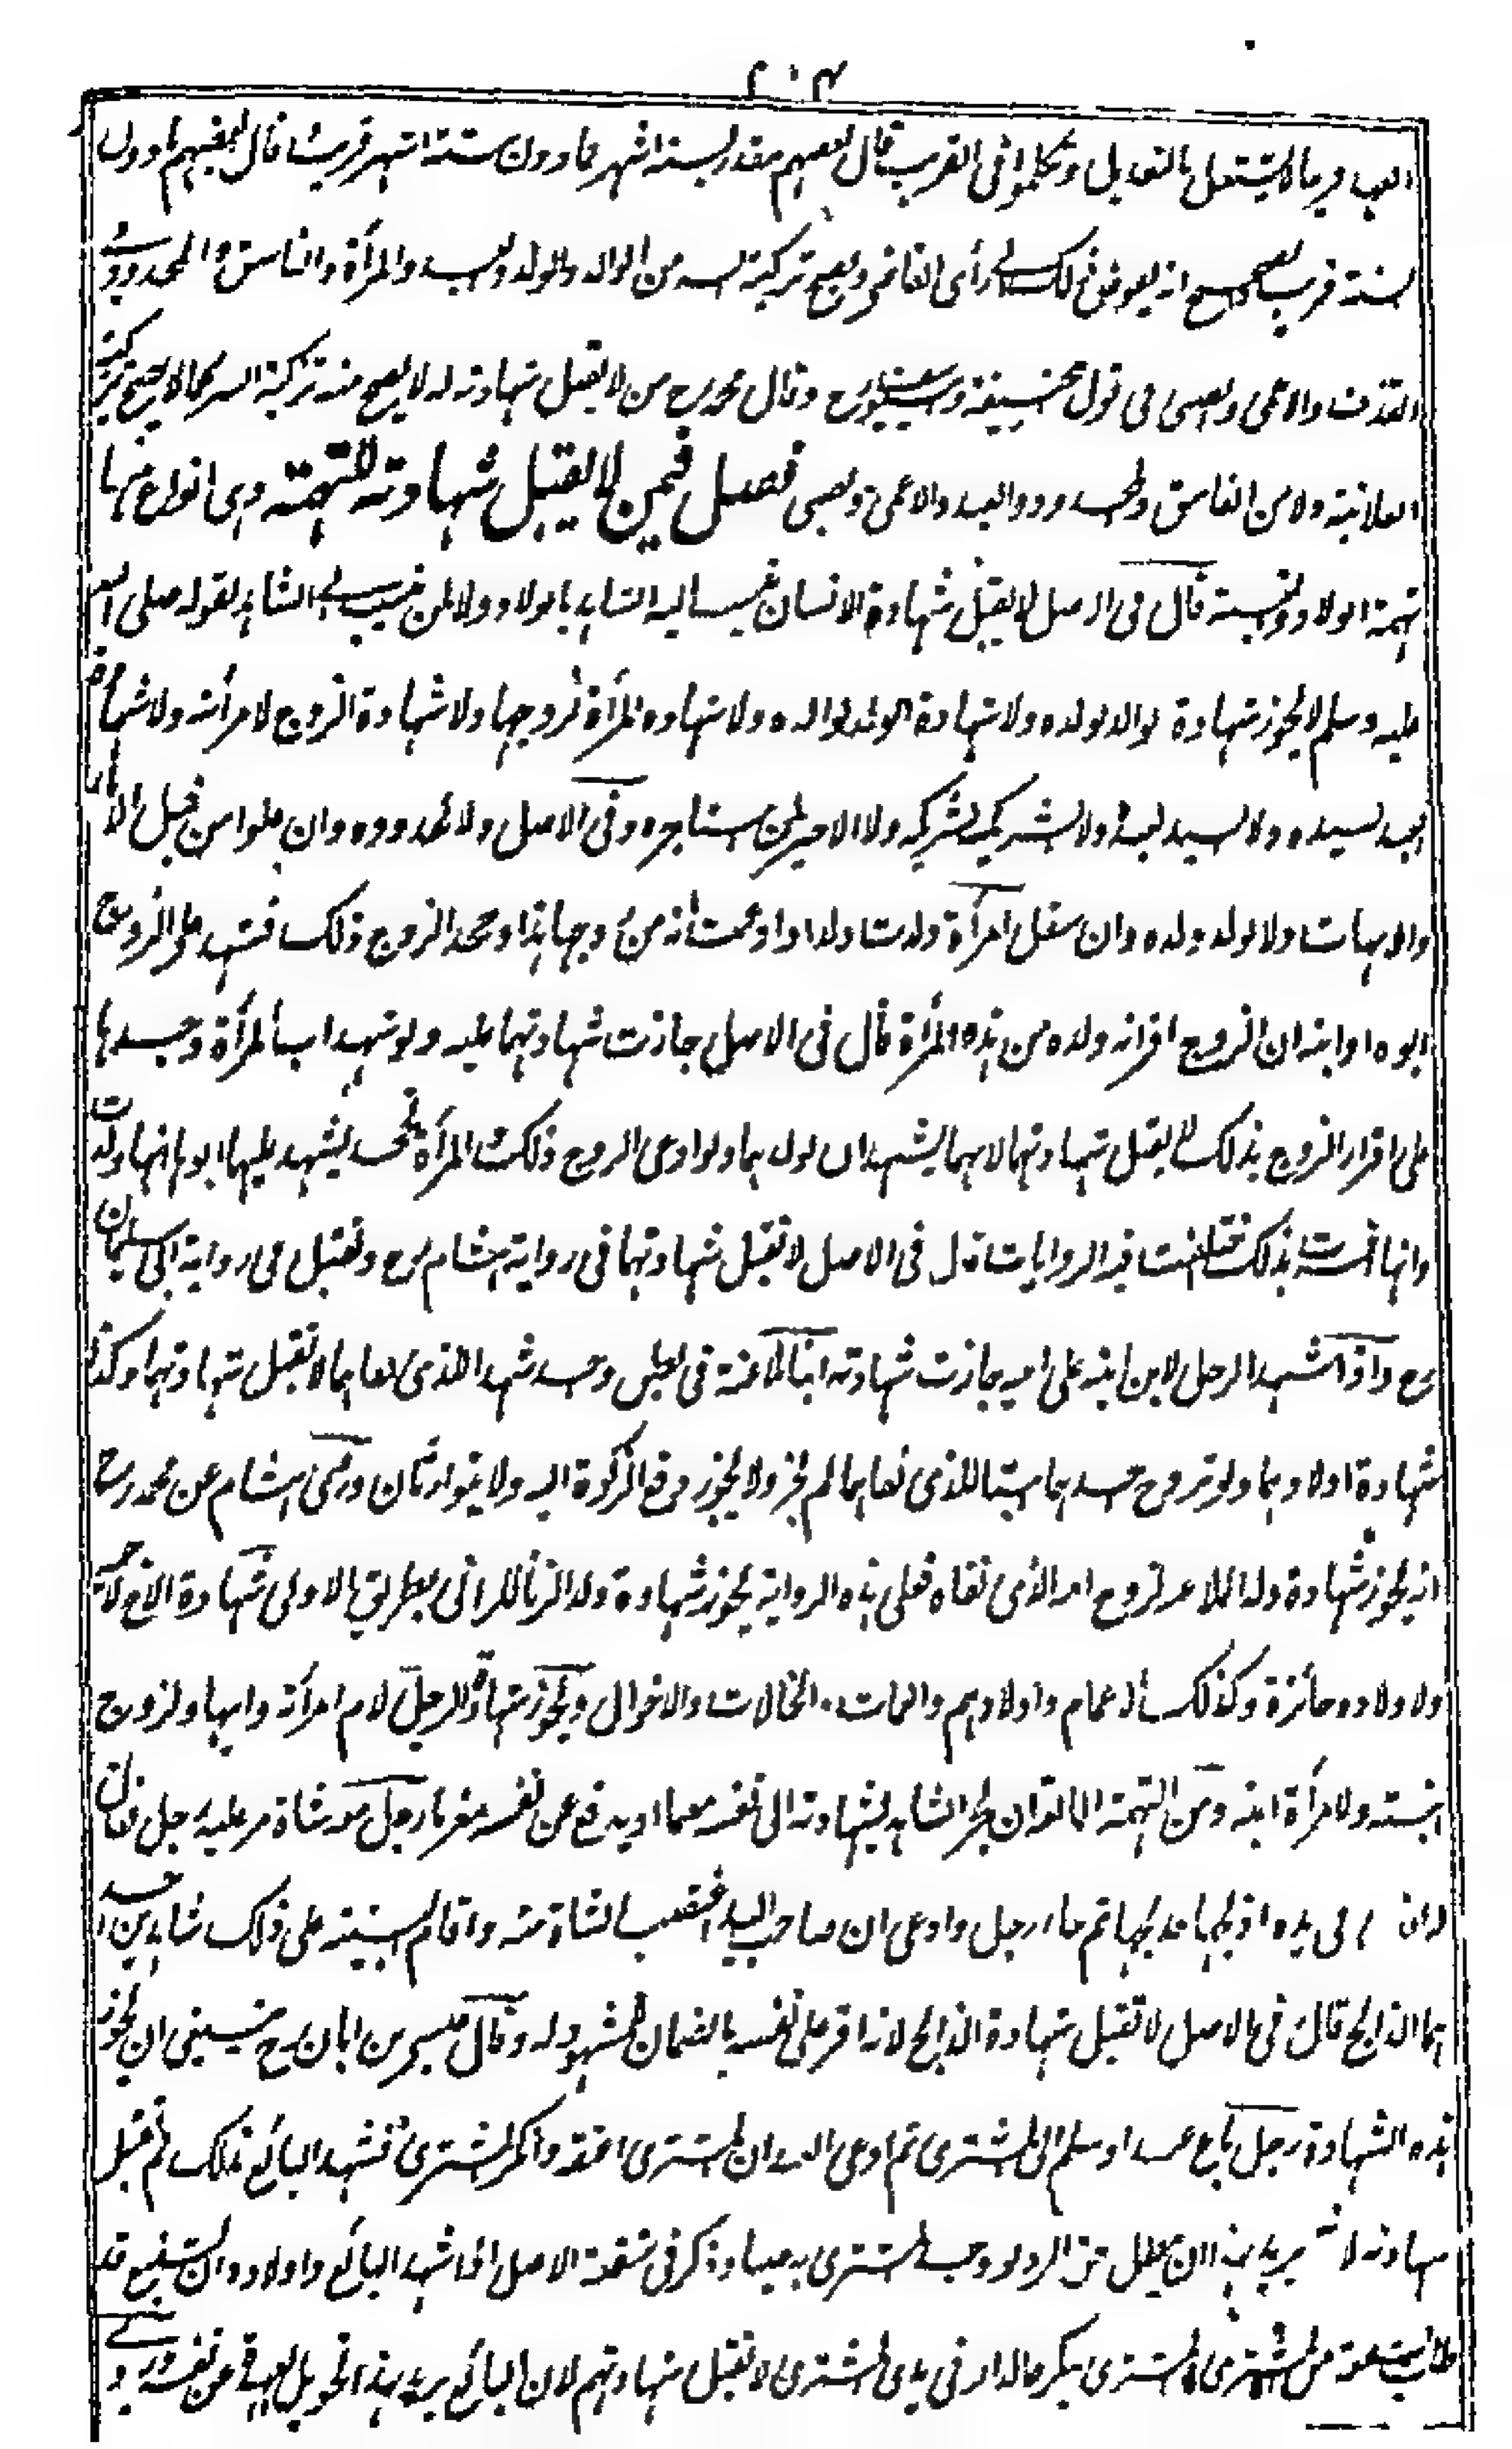 ٢٠٣
القريب وربما لا يشتغل بالتعديل وتكلموا فى القريب قال بعضهم مقدر بستة اشهر فما دون ستة اشهر قريب وقال بعضهم ما دون
السنة قريب والصحيح انه يفوض ذلك الى رأى القاضى ويصح تزكية السر من الوالد والولد والعبد والمرأة والفاسق والمحدود فى
القذف والاعمى والصبى فى قول ابى حنيفة وابى يوسف رح وقال محمد رح من لا يقبل شهادته له لا يصح منه تزكية السر كما لا يصح تزكية
العلانية ولا من الفاسق والمحدود والعبد والاعمى والصبى فصل فيمن لا يقبل شهادته للتهمة وهى انواع منها
تهمة الولاد والنسبة قال فى الاصل لا يقبل شهادة الانسان لمن ينسب اليه الشاهد بالولاد ولا لمن ينسب الى الشاهد لقوله صلى الله
عليه وسلم لا يجوز شهادة الوالد لولده ولا شهادة الولد لوالده ولا شهادة المرأة لزوجها ولا شهادة الزوج لامرأته ولا شهادة
العبد لسيده ولا السيد لعبده ولا الشريك لشريكه ولا الاجير لمن استاجره وفى الاصل ولا لجدوده وان علوا من قبل الآباء
والامهات ولا لولد ولده وان سفل امرأة ولدت ولدا وادعت انه من زوجها هذا وجحد الزوج ذلك فشهد على الزوج
ابوه او ابنه ان الزوج اقر انه ولده من هذه المرأة قال فى الاصل جازت شهادتهما عليه ولو شهد اب المرأة وجدها
على اقرار الزوج بذلك لا يقبل شهادتهما لانهما يشهدان لولدهما ولو ادعى الزوج ذلك والمرأة تجحد فشهد عليها ابوها انها ولدت
وانها اقرت بذلك اختلفت فيه الروايات قال فى الاصل لا تقبل شهادتهما فى رواية هشام رح وتقبل فى رواية ابى سليمان
رح واذا شهد الرجل لابن ابنه على ابيه جازت شهادته ابنا الملاعنة فى بطن واحد شهدا للذى نفاهما لا تقبل شهادتهما وكذا
شهادة اولادهما ولو تزوج احدهما بنتا للذى نفاهما لم يجز ولا يجوز دفع الزكوة اليه ولا يتوارثان وروى هشام عن محمد رح
انه يجوز شهادة ولد الملاعنة لزوج امه الذى نفاه فعلى هذه الرواية يجوز شهادة ولد الزنا للزانى بطريق الاولى شهادة الاخ لاخيه
ولاولاده جائزة وكذلك الاعمام واولادهم والعمات والخالات والاخوال ويجوز شهادة الرجل لام امرأته وابيها ولزوج
ابنته ولامرأة ابنه ومن التهمة المانعة ان يجر الشاهد بشهادته الى نفسه مغنما او يدفع عن نفسه مغرما رجل معه شاة مر عليه رجل فقال
لذى فى يده اذبحها فذبحها ثم جاء رجل وادعى ان صاحب اليد اغتصب الشاة منه واقام البينة على ذلك شاهدين احد
هما الذابح قال فى الاصل لا تقبل شهادة الذابح لانه اقر على نفسه بالضمان للمشهود له وقال عيسى بن ابان رح ينبغى ان يجوز
هذه الشهادة رجل باع عبدا وسلم الى المشترى ثم ادعى العبد ان المشترى اعتقه وانكر المشترى فشهد البائع بذلك لم تقبل
شهادته لانه يريد بهذا ان يبطل حق الرد لو وجد المشترى به عيبا وذكر فى شفعة الاصل اذا شهد البائع واولاده ان الشفيع قد
طلب الشفعة من المشترى والمشترى ينكر والدار فى يدى المشترى لا تقبل شهادتهم لان البائع يريد بهذا تحويل العهدة عن نفسه